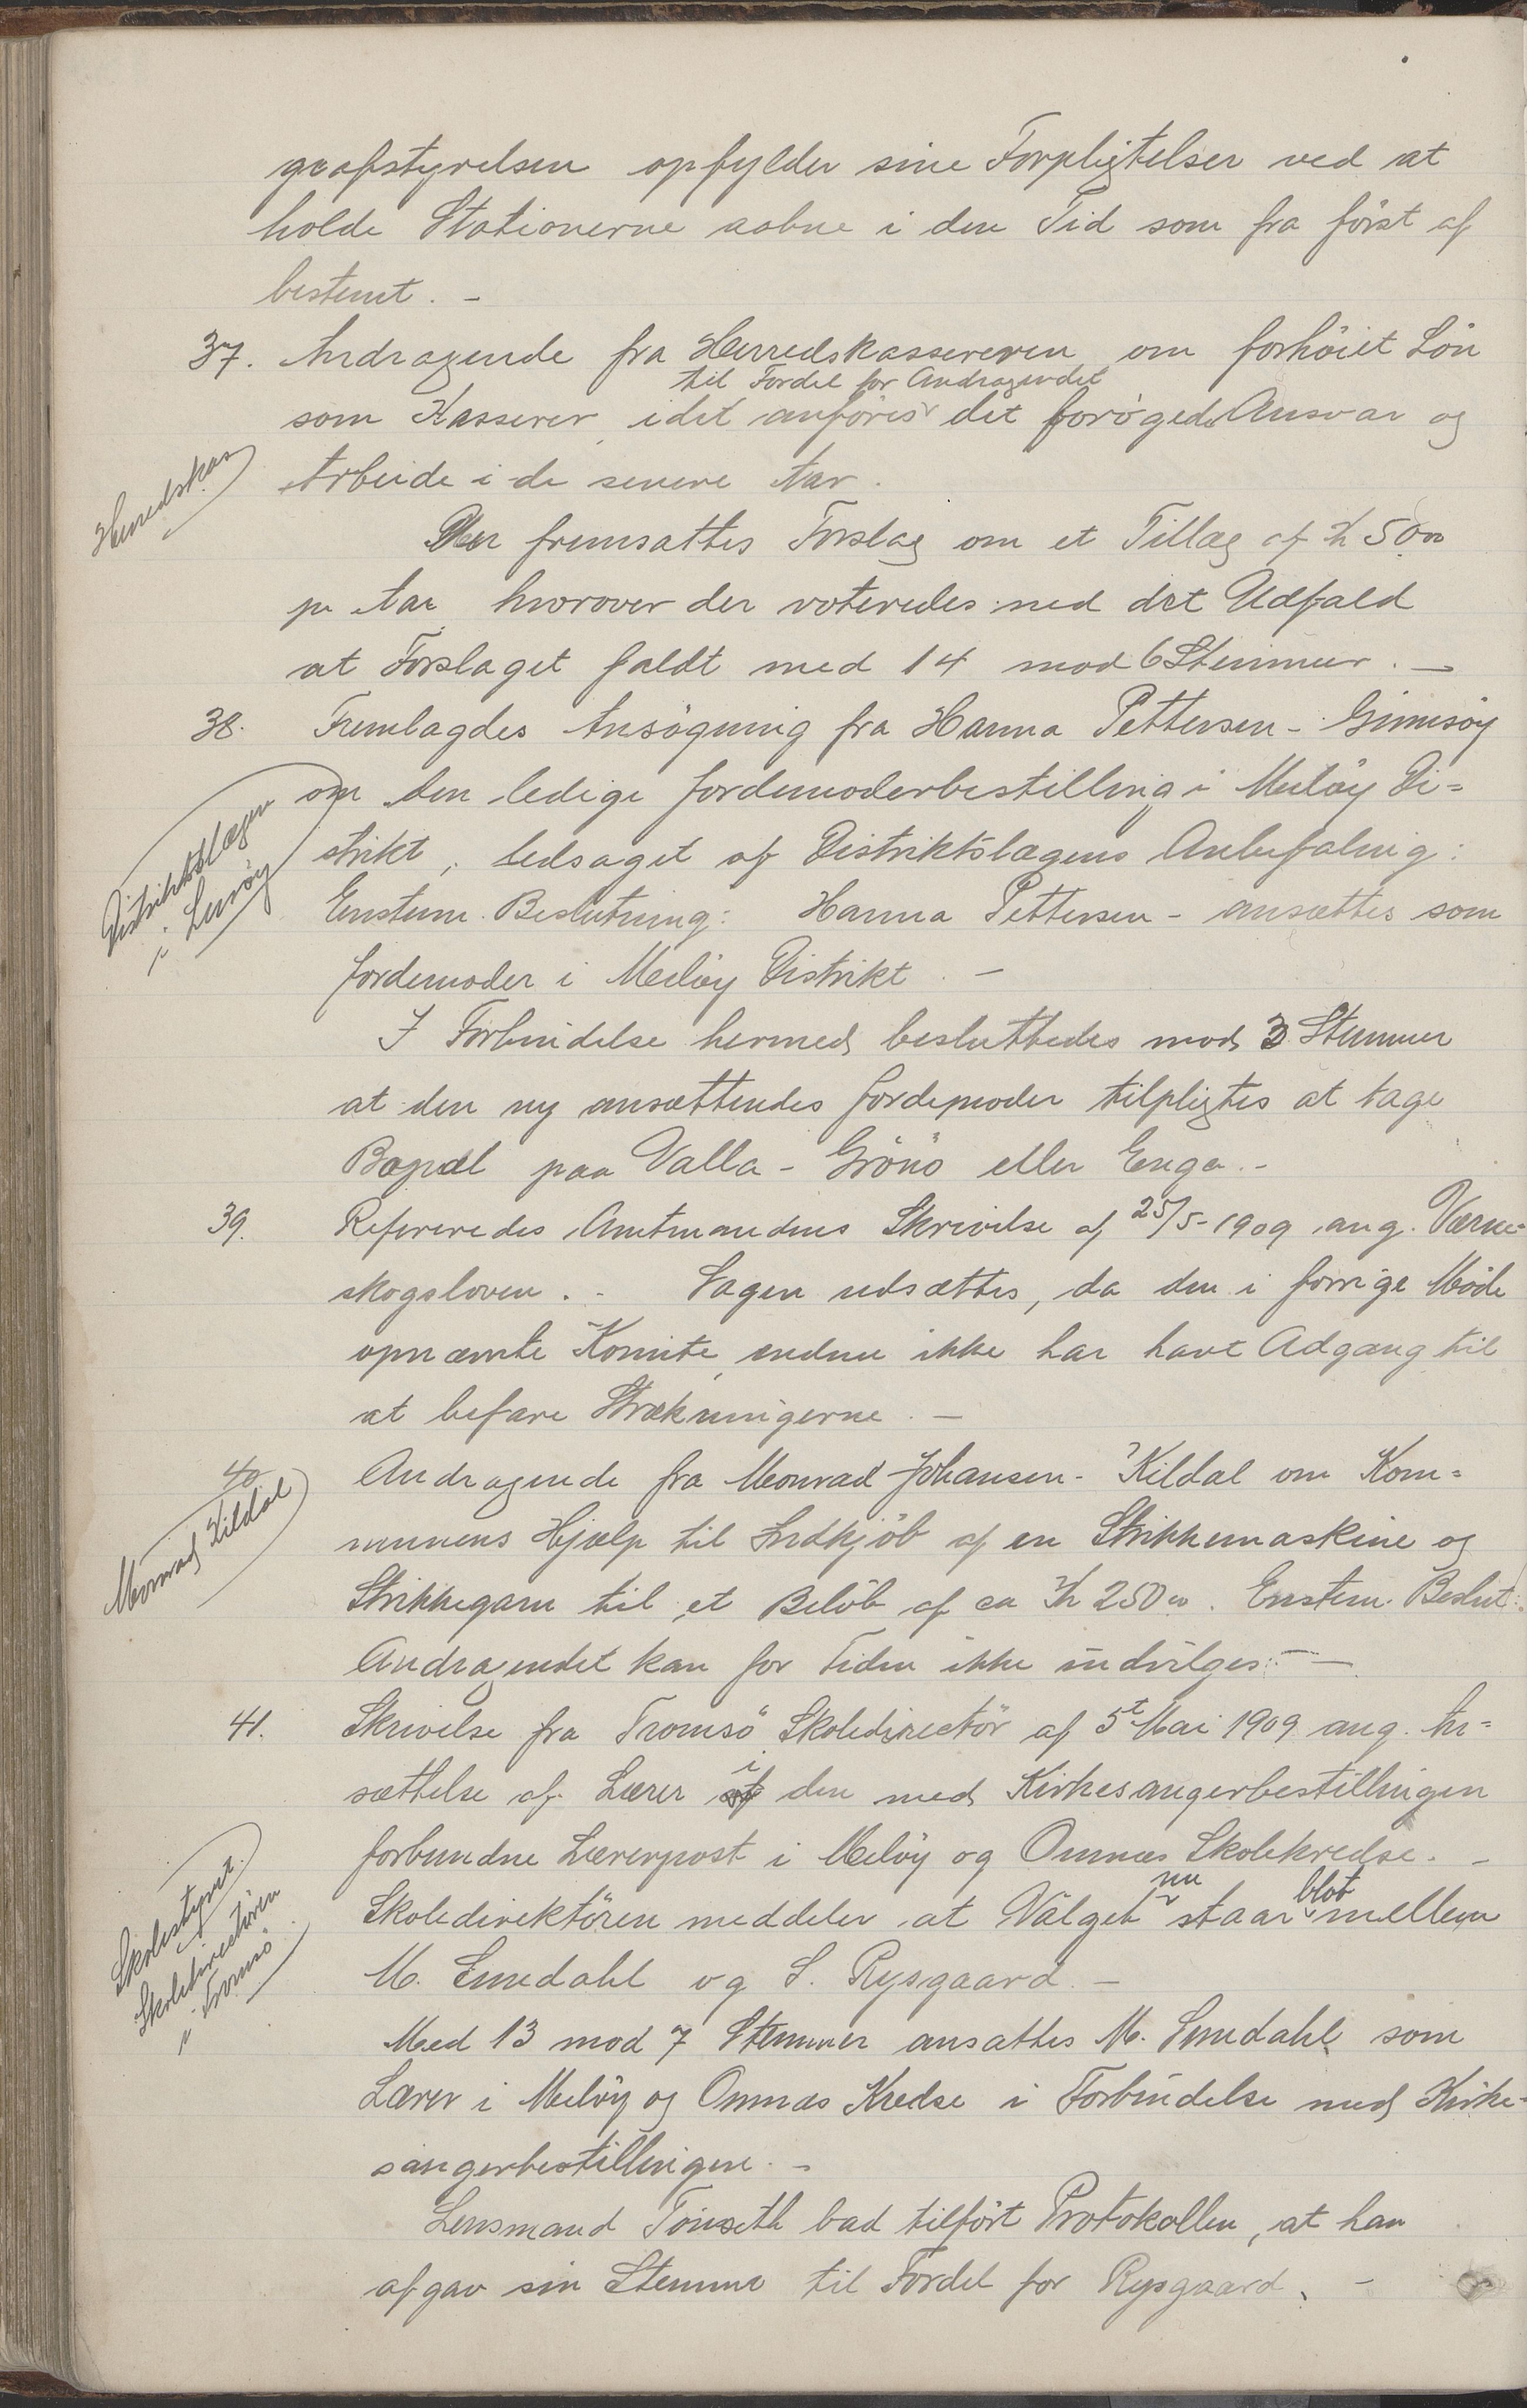 grafstyrelsen opfylder sine Forpligtelser ved at
holde Stationerne aabne i den Tid som fra först af
bestemt. -
37. Andragende fra Herredskassereren om forhöiet Lön
til Fordel for Andragendet
som Kasserer, idet anföres det forögede Ansvar og
Arbeide i de senere Aar.
Herredskas
Der fremsattes Forslag om et Tillæg af Kr 50 00
pr Aar hvorover der voteredes med det Udfald
at Forslaget faldt med 14 mod 6 Stemmer. -
38. Fremlagdes Ansögning fra Hanna Pettersen - Gimsöy
om den ledige Jordemoderbestilling i Melöy Di=
strikt, ledsaget af Distriktslægens Anbefaling:
Distriktslægen
i Lusöy
Enstem. Beslutning: Hanna Pettersen - ansættes som
Jordemoder i Melöy Distrikt. -
I Forbindelse hermed besluttedes mod 3 Stemmer
at den ny ansættendes Jordemoder tilpligtes at tage
Bopæl paa Valla - Grönö eller Enga. -
39. Refereredes Amtmandens Skrivelse af 25/5-1909 ang. Værne-
skogsloven. - Sagen udsættes, da den i forrige Möde
opnævnte Komite, endnu ikke har havt Adgang til
at befare Strækningerne. -
40 Andragende fra Monrad Johansen - Kildal om Kom=
Monrad Kildal
munens Hjælp til Indkjöb af en Strikkemaskine og
Strikkegarn til et Belöb af ca Kr 250 00. Enstem. Beslut:
Andragendet kan for Tiden ikke indvilges. -
41. Skrivelse fra Tromsö Skoledirectör af 5te Mai 1909 ang. An=
sættelse af Lærer i den med Kirkesangerbestillingen
forbundne Lærerpost i Melöy og Ounæs Skolekredse. -
Skolestyret.
Skoledirectören
i Tromsö
Skoledirektören meddeler at Valget nu staar blot mellem
M. Smedahl og S. Rysgaard. -
Med 13 mod 7 Stemmer ansattes M. Smedahl som
Lærer i Melöy og Ounæs Kredse i Forbindelse med Kirke-
sangerbestillingen. -
Lensmand Tönseth bad tilfört Protokollen, at han
afgav sin Stemme til Fordel for Rysgaard. -